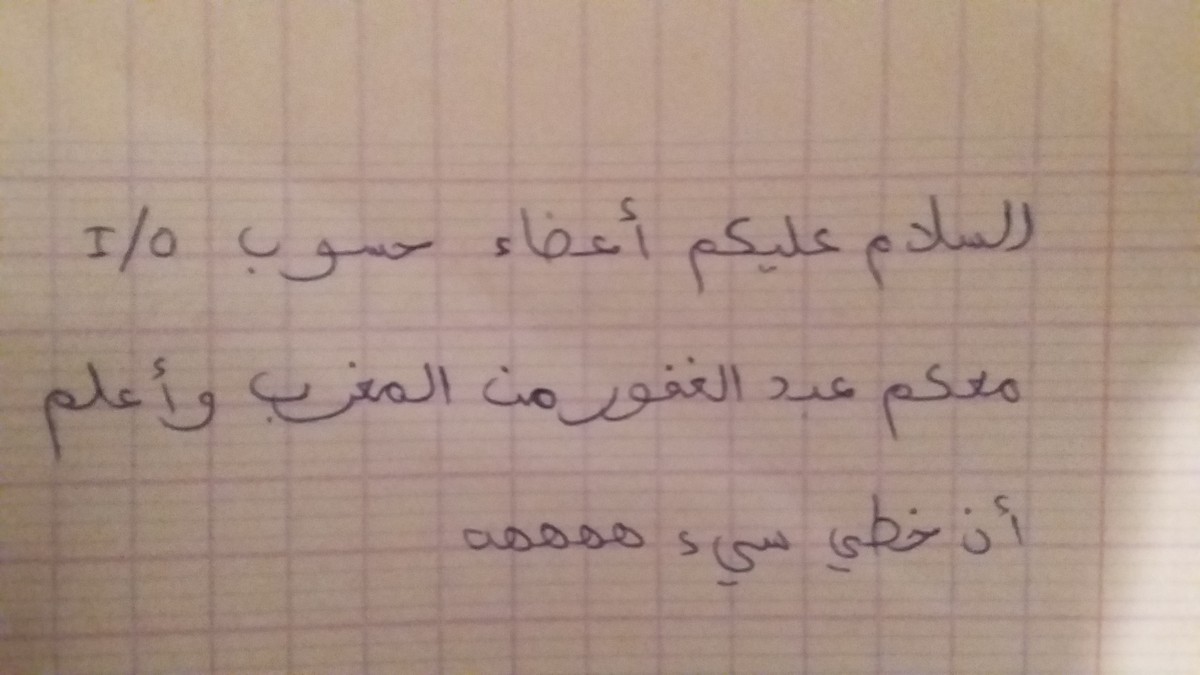 السلام عليكم أعضاء حسوب I/O
معكم عبد الغفور من المغرب وأعلم
أن خطي سيء ههههه